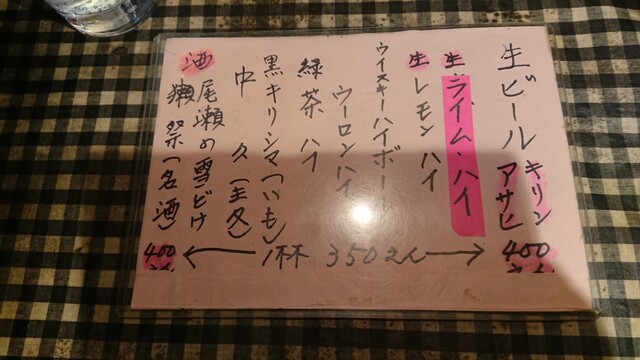 生ビール キリン
アサヒ
400
えん
生ライム・ハイ
生レモンハイ
ウイスキーハイボール
ウーロンハイ
緑茶ハイ
黒キリシマ(いも)
中々(主冬)
酒 尾瀬の雪どけ
獺祭(名酒)
400
えん
←1杯 350えん→